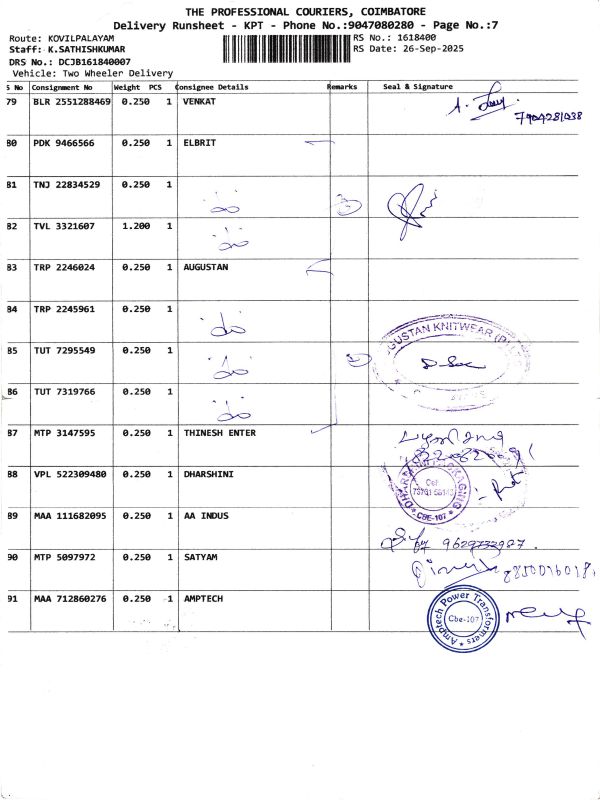 THE PROFESSIONAL COURIERS, COIMBATORE
Delivery Runsheet - KPT - Phone No.:9047080280 - Page No.:7
Route: KOVILPALAYAM RS No.: 1618400
Staff: K.SATHISHKUMAR RS Date: 26-Sep-2025
DRS No.: DCJB161840007
Vehicle: Two Wheeler Delivery
S No Consignment No Weight PCS Consignee Details Remarks Seal & Signature
79 BLR 2551288469 0.250 1 VENKAT
80 PDK 9466566 0.250 1 ELBRIT
81 TNJ 22834529 0.250 1
do
82 TVL 3321607 1.200 1
do
83 TRP 2246024 0.250 1 AUGUSTAN
84 TRP 2245961 0.250 1
do
85 TUT 7295549 0.250 1
GUSTAN KNITWEAR (P)
do
86 TUT 7319766 0.250 1
do
87 MTP 3147595 0.250 1 THINESH ENTER
88 VPL 522309480 0.250 1 DHARSHINI
Cel
CBE-107
89 MAA 111682095 0.250 1 AA INDUS
9629733987
90 MTP 5097972 0.250 1 SATYAM
91 MAA 712860276 0.250 1 AMPTECH
Amptech Power Transformers
Cbe-107